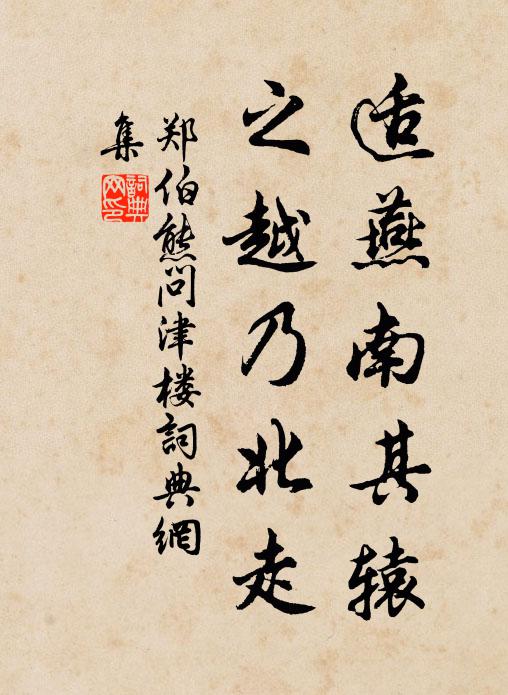 适燕南其辕
之越乃北走
郑伯熊问津楼詞典網
集
詞典
网印